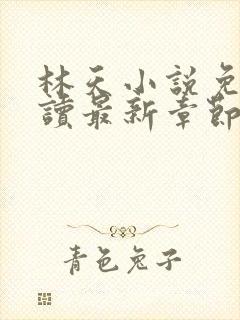 林天小說免
讀最新章節
青色兔子